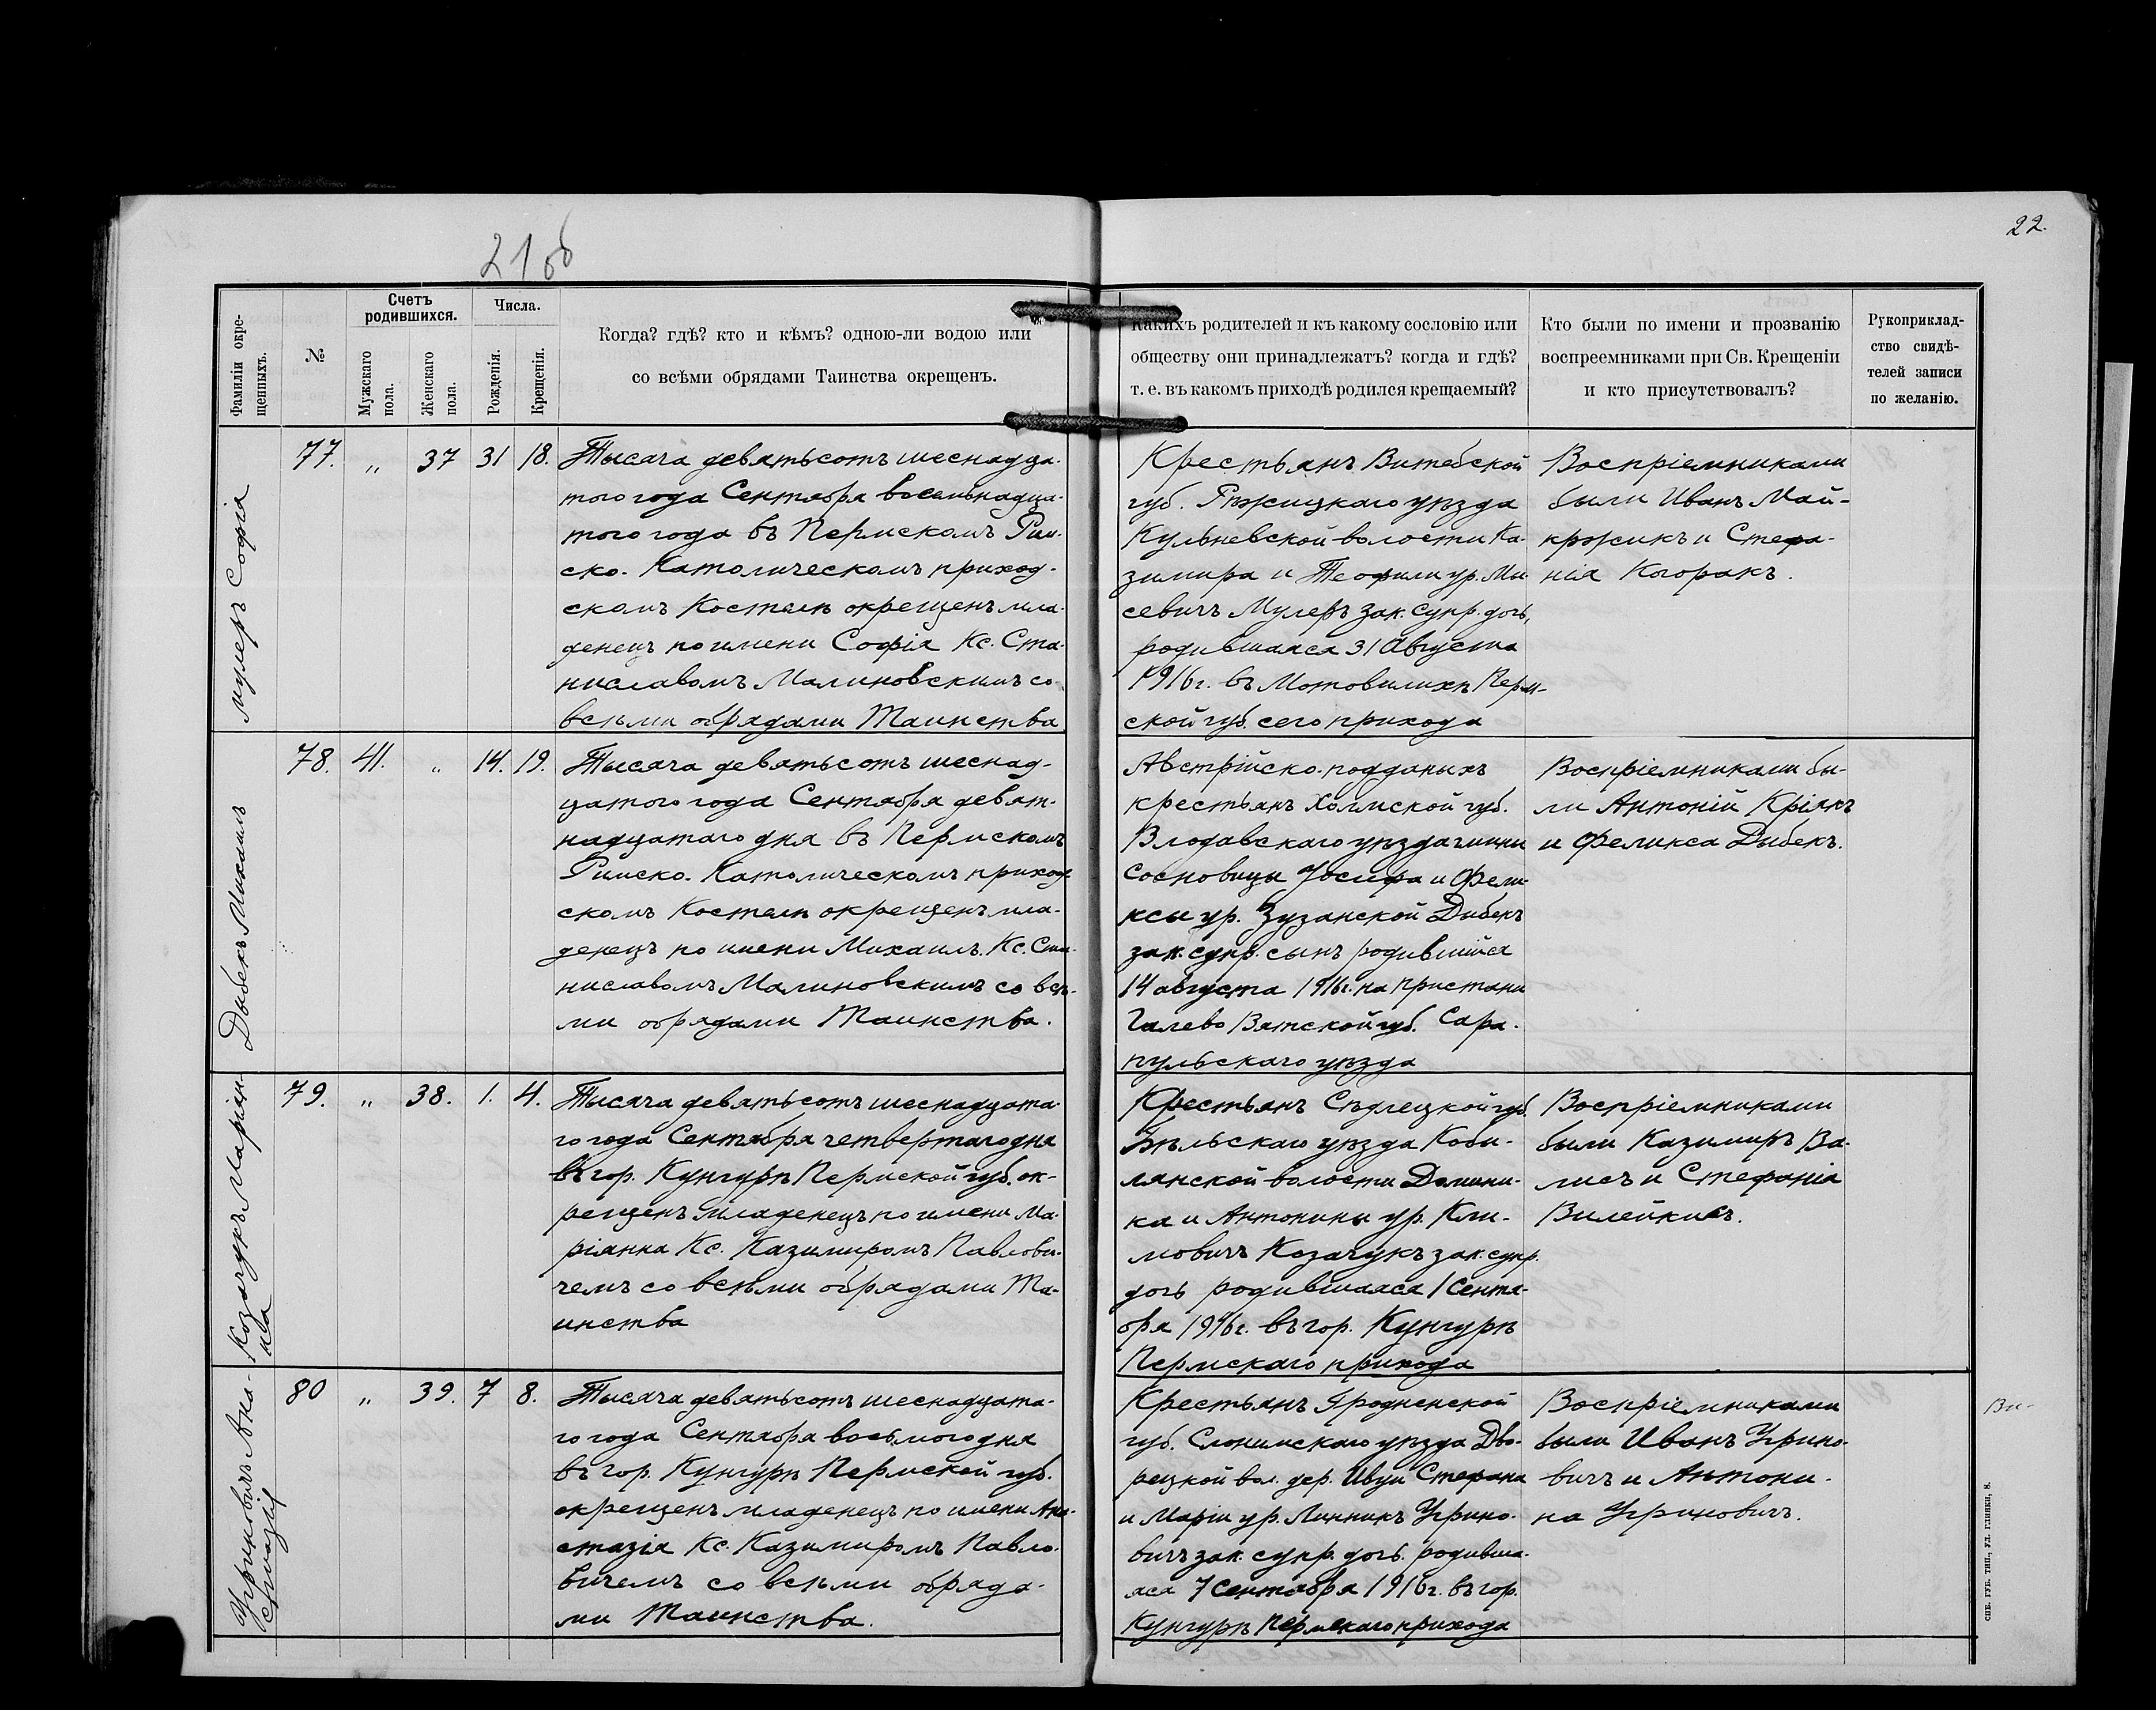 21 об
22.
Фамиліи окре-
щенныхъ.
№
Счетъ
родившихся.
Мужскаго
пола.
Женскаго
пола.
Числа.
Рожденія.
Крещенія.
Когда? гдѣ? кто и кѣмъ? одною-ли водою или
со всѣми обрядами Таинства окрещенъ.
Какихъ родителей и къ какому сословію или
обществу они принадлежатъ? когда и гдѣ?
т. е. въ какомъ приходѣ родился крещаемый?
Кто были по имени и прозванію
воспреемниками при Св. Крещеніи
и кто присутствовалъ?
Рукоприклад-
ство свидѣ-
телей записи
по желанію.
Мулеръ Софія
77. „ 37 31 18.
Тысяча девятьсотъ шеснадца-
того года Сентября восемьнадца-
того года въ Пермскомъ Рим-
ско-Католическомъ приход-
скомъ Костелѣ окрещенъ мла-
денецъ по имени Софія Кс. Ста-
ниславомъ Малиновскимъ со
всѣми обрядами Таинства
Крестьянъ Витебской
губ. Рѣжицкаго уѣзда
Кульневской волости Ка-
зимира и Теофили ур. Ми-
севичъ Мулеръ зак. супр. дочь,
родившаяся 31 Августа
1916 г. въ Мотовилихѣ Перм-
ской губ. сего прихода
Воспріемниками
были Иванъ Май-
кржикъ и Стефа-
нія Когоракъ.
Дыбекъ Михаилъ
78. 41. „ 14. 19.
Тысяча девятьсотъ шеснад-
цатого года Сентября девят-
надцатаго дня въ Пермскомъ
Римско-Католическомъ приход-
скомъ Костелѣ окрещенъ мла-
денецъ по имени Михаилъ. Кс. Ста-
ниславомъ Малиновскимъ со всѣ-
ми обрядами Таинства.
Австрійско-подданыхъ
крестьянъ Холмской губ.
Влодавскаго уѣзда гмины
Сосновицы Іосифа и Фели-
ксы ур. Зузанской Дыбекъ
зак. супр. сынъ родившійся
14 августа 1916 г. на пристани
Галево Вятской губ. Сара-
пульскаго уѣзда
Воспріемниками бы-
ли Антоній Кріякъ
и Феликса Дыбекъ.
Козачукъ Маріан-
на
79. „ 38. 1. 4.
Тысяча девятьсотъ шеснадцата-
го года Сентября четвертаго дня
въ гор. Кунгурѣ Пермской губ. ок-
рещенъ младенецъ по имени Ма-
ріянна Кс. Казимиромъ Павлови-
чемъ со всѣми обрядами Та-
инства
Крестьянъ Сѣдлецкой губ.
Бѣльскаго уѣзда Коби-
лянской волости Домини-
ка и Антонины ур. Кли-
мовичъ Козачукъ зак. супр.
дочь родившаяся 1 Сентя-
бря 1916 г. въ гор. Кунгурѣ
Пермскаго прихода
Воспріемниками
были Казимиръ Ва-
лисъ и Стефанія
Вилейкисъ.
Угриновичъ Ана-
стазія
80 „ 39. 7 8.
Тысяча девятьсотъ шеснадцата-
го года Сентября восьмого дня
въ гор. Кунгурѣ Пермской губ.
окрещенъ младенецъ по имени Ана-
стазія Кс. Казимиромъ Павло-
вичемъ со всѣми обряда-
ми Таинства.
Крестьянъ Гродненской
губ. Слонимскаго уѣзда Дво-
рецкой вол. дер. Ивуи Стефана
и Маріи ур. Линникъ Угрино-
вичъ зак. супр. дочь. родивша-
яся 7 Сентября 1916 г. въ гор.
Кунгурѣ Пермскаго прихода
Воспріемниками
были Иванъ Угрино-
вичъ и Антони-
на Угриновичъ.
СПБ. ГУБ. ТИП., УЛ. ГЛИНКИ, 8.